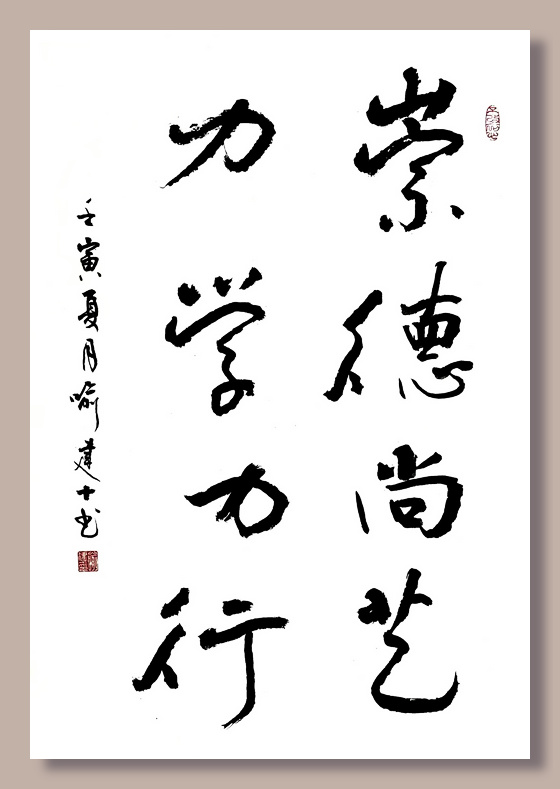 崇德尚艺
力学力行
壬寅夏月喻建十书